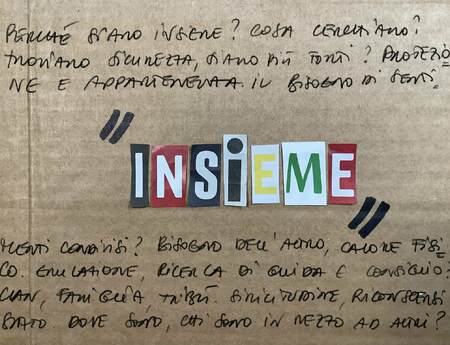 PERCHÉ SIAMO INSIEME? COSA CERCHIAMO?
TROVIAMO SICUREZZA, SIAMO PIÙ FORTI? PROTEZIO
NE E APPARTENENZA. IL BISOGNO DI SENTI
"INSiEME"
MENTI CONDIVISI? BISOGNO DELL'ALTRO, CALORE FISI
CO. EMULAZIONE, RICERCA DI GUIDA E CONSIGLIO?
CLAN, FAMIGLIA, TRIBÙ. SIMILITUDINE, RICONOSCERSI
STATO DOVE SONO, CHI SONO IN MEZZO AD ALTRI?